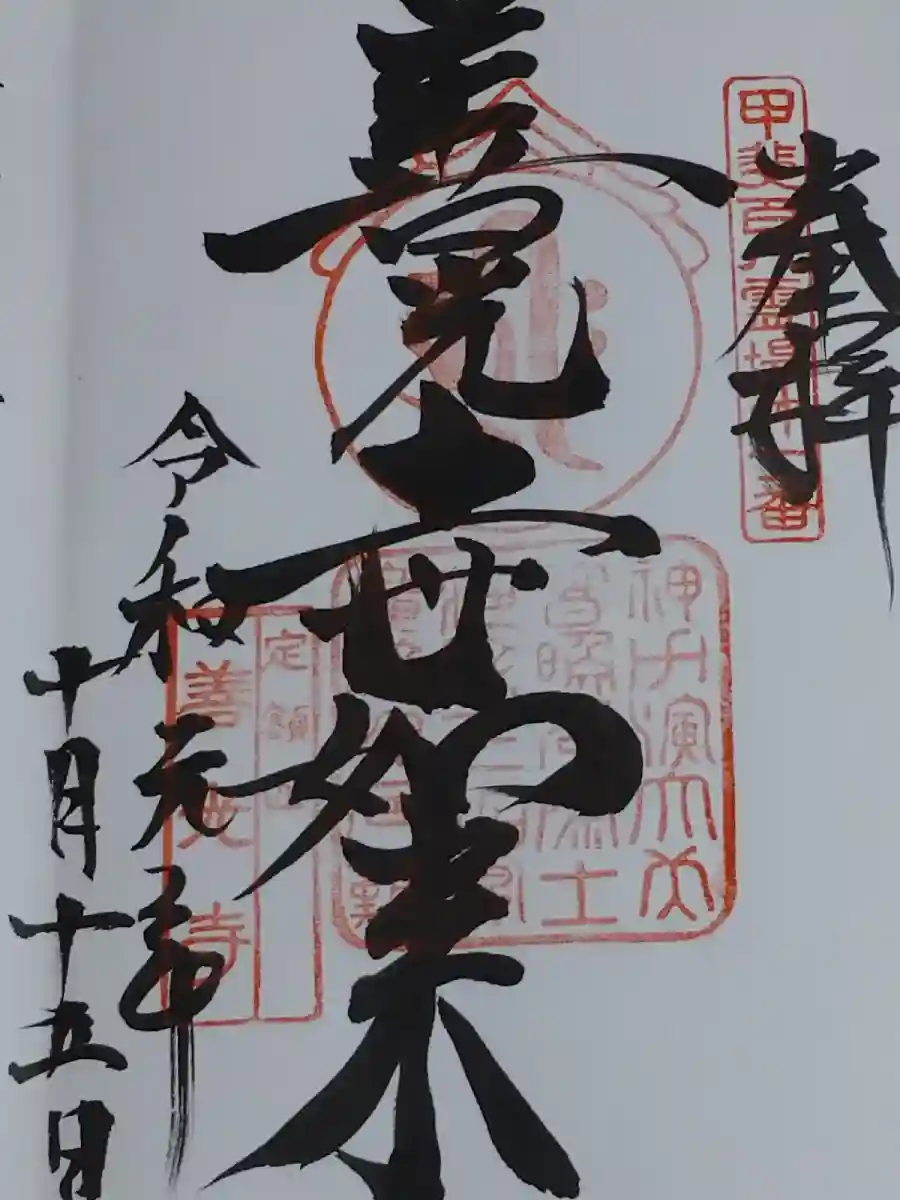 奉拝
甲斐百八霊場第一番
善光寺如来
定額山
善光寺
令和元年
十月十五日